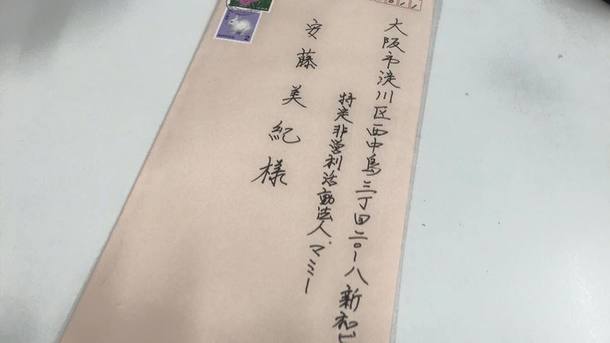 大阪市淀川区西中島三丁目二〇ー八新和ビ
特定非営利活動法人.マミー
安藤美紀様
2